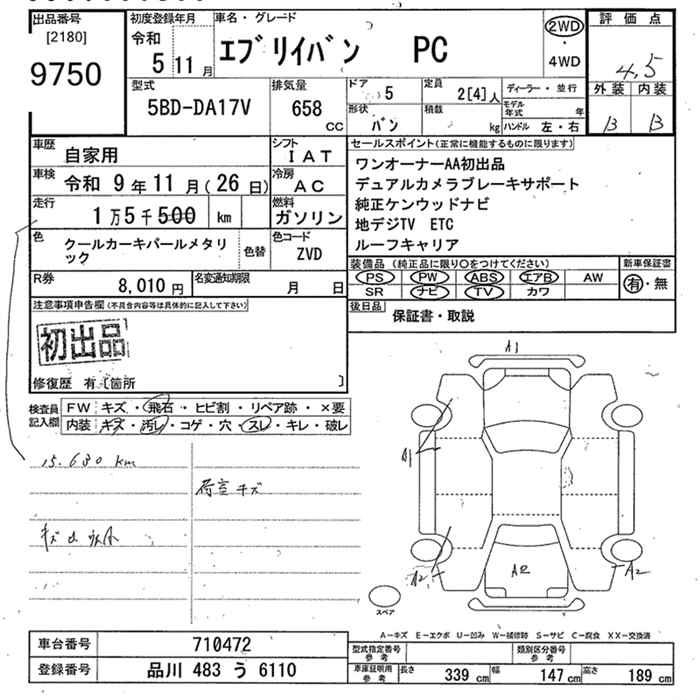 出品番号 初度登録年月 車名・グレード 評価点
[2180] 令和 5 11月 エブリイバン PC 2WD・4WD 4.5
9750
型式 排気量 ドア 5 定員 2[4]人 ディーラー・並行 外装 内装
5BD-DA17V 658 CC 形状 バン 積載 kg モデル年式 年 ハンドル 左・右 B B
車歴 自家用 シフト IAT セールスポイント(正常に機能するものに限ります)
車検 令和 9年11月(26日) 冷房 AC ワンオーナーAA初出品
デュアルカメラブレーキサポート
走行 1万5千500 km 燃料 ガソリン 純正ケンウッドナビ
地デジTV ETC
色 クールカーキパールメタリック 色替 色コード ZVD ルーフキャリア
装備品(純正品に限り○をつけてください) 新車保証書
R券 8,010円 名変通知期限 月 日 PS PW ABS エアB AW 有・無
SR ナビ TV カワ
注意事項申告欄(不具合内容等は具体的に記入して下さい) 後日品 保証書・取説
初出品
修復歴 有〔箇所 〕
検査員記入欄 FW キズ・飛石・ヒビ割・リペア跡・×要
内装 キズ・汚レ・コゲ・穴・スレ・キレ・破レ
A1
A1
15.630 km
荷室キズ
A2 A2 A2
スペア
A-キズ E-エクボ U-凹み W-補修跡 S-サビ C-腐食 XX-交換済
車台番号 710472 型式指定番号 参考 類別区分番号 参考
登録番号 品川 483 う 6110 車庫証明用 参考 長さ 339 cm 幅 147 cm 高さ 189 cm